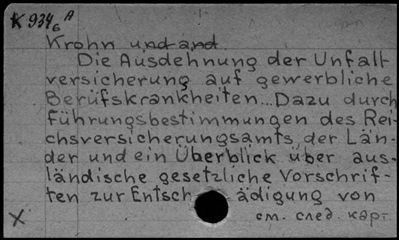 K 934 A
6
Krohn und and.
Die Ausdehnung der Unfall
versicherung auf gewerbliche
Berufskrankheiten... Dazu durch
führungsbestimmungen des Rei-
chsversicherungsamts, der Län-
der und ein Überblick über aus-
ländische gesetzliche Vorschrif-
ten zur Entsch ädigung von
X см. след. карт.